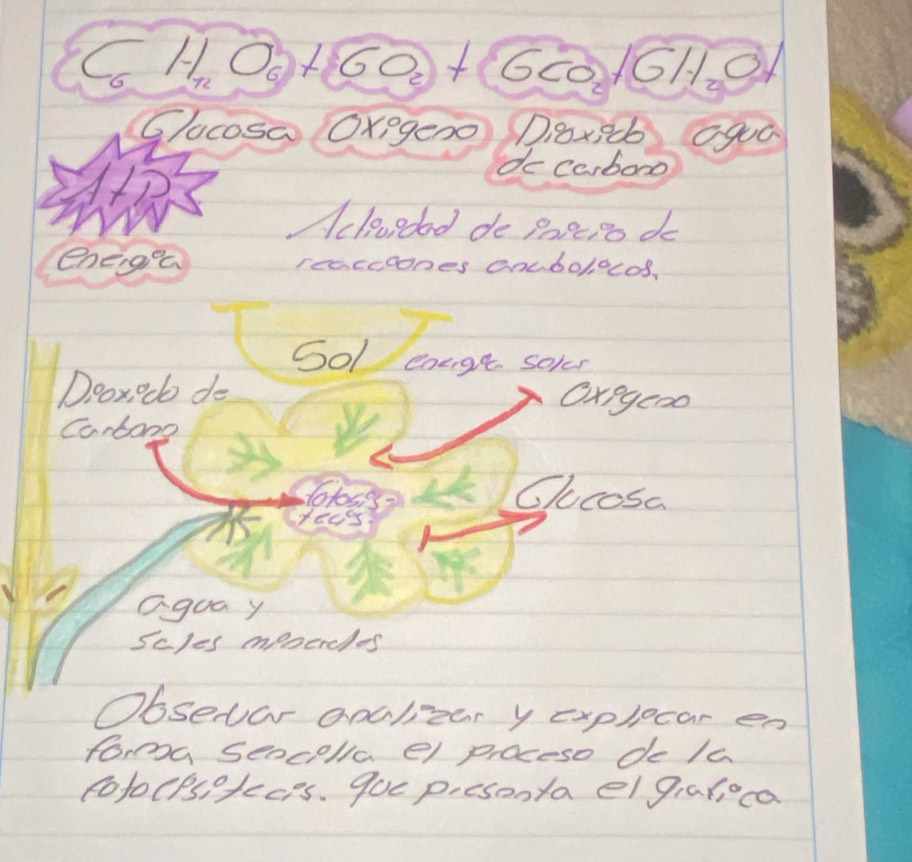 C6 H12 O6 + 6O2 + 6CO2 + 6H2O +
Glucosa Oxigeno Dioxido agua
de carbono
ATP
energia
Actividad de inicio de
reacciones anabolicos.
Sol energia solar
Dioxido de
carbono
Oxigeno
fotosis-
tecis.
Glucosa
agua y
sales minerales
Observar analizar y explicar en
forma sencilla el proceso de la
fotocisitecis. que presenta el grafica